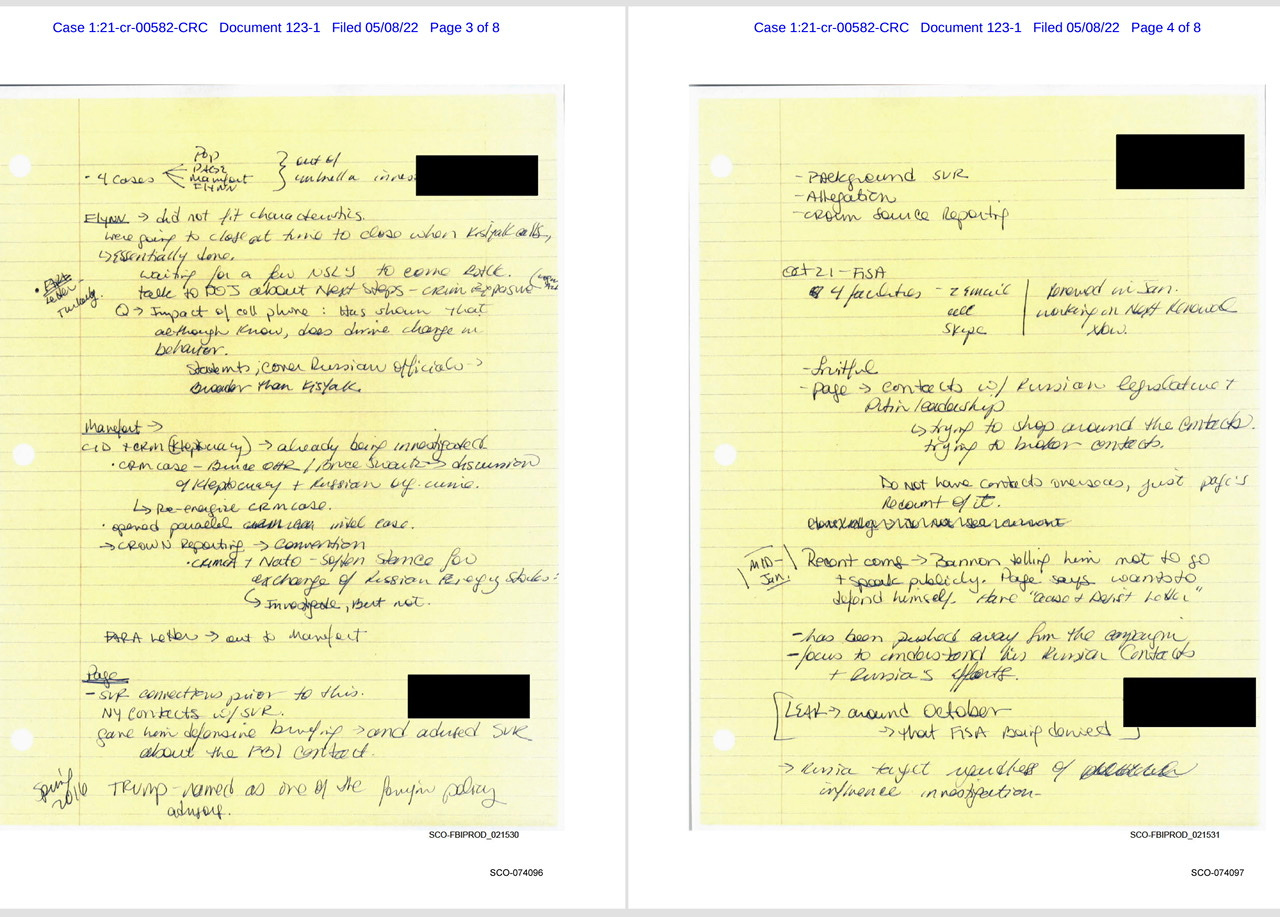 Case 1:21-cr-00582-CRC Document 123-1 Filed 05/08/22 Page 3 of 8
Pop
Page
Manafort
Flynn
- 4 cases
} out of
umbrella
FLYNN → did not fit characteristics.
were going to close at time to close when Kislyak calls,
↳ Essentially done.
waiting for a few NSL's to come back.
talk to DOJ about Next Steps - crim exposure
• FARA
Letter -
Turkey.
Q → Impact of cell phone: Has shown that
although know, does drive change in
behavior.
; cover Russian Officials →
broader than Kislyak.
Manafort →
CID + CRM (Kleptocracy) → already being investigated
• CRM case - Bruce OHR / Bruce Swartz → discussion
of Kleptocracy + Russian org. crime.
↳ Re-energize CRM case.
• opened parallel intel case.
→ CROWN Reporting → Convention
• Crimea + Nato - soften stance for
exchange of Russian Energy stocks:
↳ Investigate, But not.
FARA Letter → out to Manafort
Page
- SVR connections prior to this.
NY contacts w/ SVR.
gave him defensive briefing → and advised SVR
about the FBI contact.
Spring
2016
TRUMP - named as one of the foreign policy
advisors.
SCO-FBIPROD_021530
SCO-074096
Case 1:21-cr-00582-CRC Document 123-1 Filed 05/08/22 Page 4 of 8
- Background SVR
- Allegation
- CROWN Source Reporting
Oct 21 - FISA
4 facilities - 2 email
cell
Skype
Renewed in Jan.
working on Next Renewal
Now.
- fruitful
- Page → contacts w/ Russian legislature +
Putin leadership
↳ trying to shop around the contacts.
trying to broker contacts.
Do Not have contacts overseas, just page's
Recount of it.
MID-
Jan.
Recent coms → Bannon telling him not to go
+ speak publicly. Page says wants to
defend himself. Have "Cease + Desist Letter"
- has been pushed away from the campaign
- focus to understand his Russian Contacts
+ Russia's efforts.
[LEAK → around October
→ that FISA Being denied]
→ Russia target regardless of
influence investigation -
SCO-FBIPROD_021531
SCO-074097